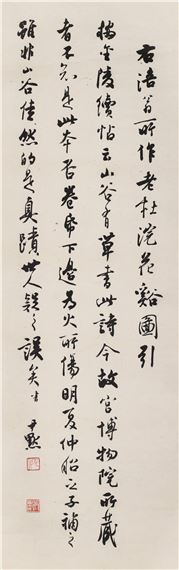 右涪翁所作老杜浣花谿圖引
橅金陵續帖云山谷有草書此詩今故宮博物院所藏
者不知是此本否卷帋下邊為火所傷明夏仲昭之子補之
雖非山谷佳然的是真蹟世人疑之誤矣
尹默